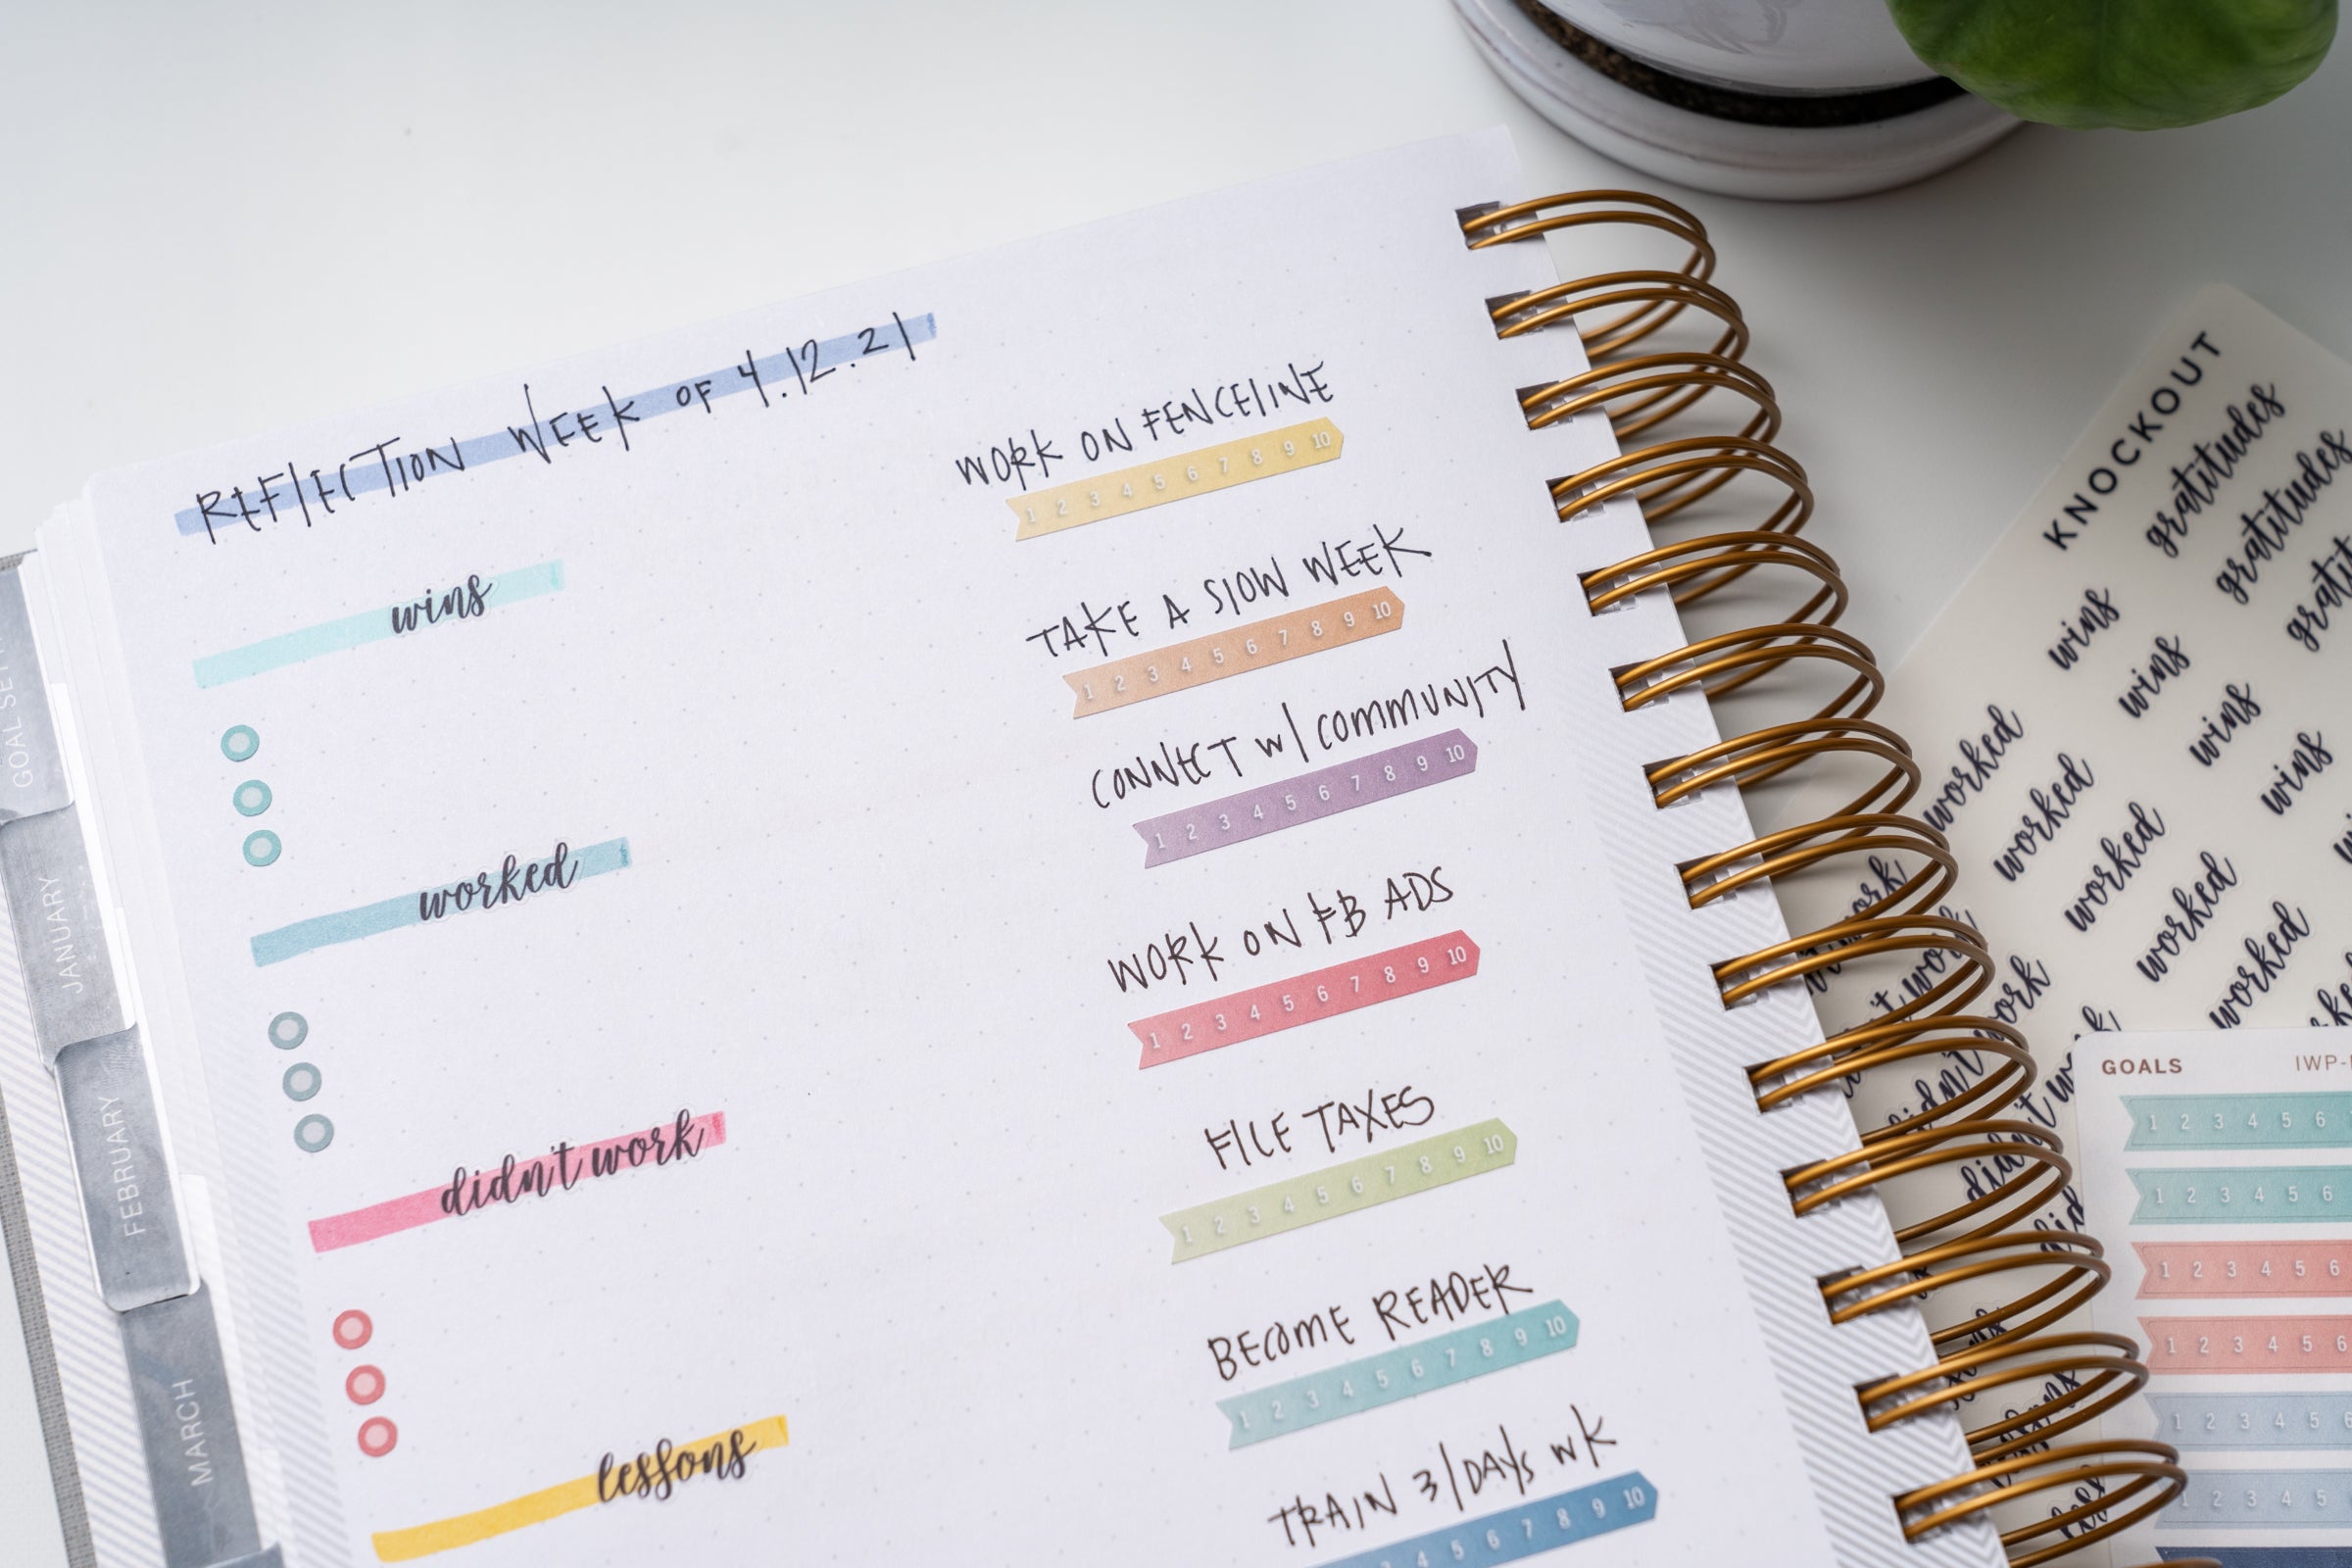 REFLECTION WEEK OF 4.12.21
wins
worked
didn't work
lessons
WORK ON FENCELINE
1 2 3 4 5 6 7 8 9 10
TAKE A SLOW WEEK
1 2 3 4 5 6 7 8 9 10
CONNECT W/ COMMUNITY
1 2 3 4 5 6 7 8 9 10
WORK ON FB ADS
1 2 3 4 5 6 7 8 9 10
FILE TAXES
1 2 3 4 5 6 7 8 9 10
BECOME READER
1 2 3 4 5 6 7 8 9 10
TRAIN 3/DAYS WK
4 5 6 7 8 9 10
JANUARY
FEBRUARY
MARCH
KNOCKOUT
gratitudes
gratitudes
wins
wins
wins
wins
worked
worked
worked
worked
worked
didn't work
GOALS
1 2 3 4 5 6
1 2 3 4 5 6
1 2 3 4 5 6
1 2 3 4 5 6
1 2 3 4 5 6
1 2 3 4 5